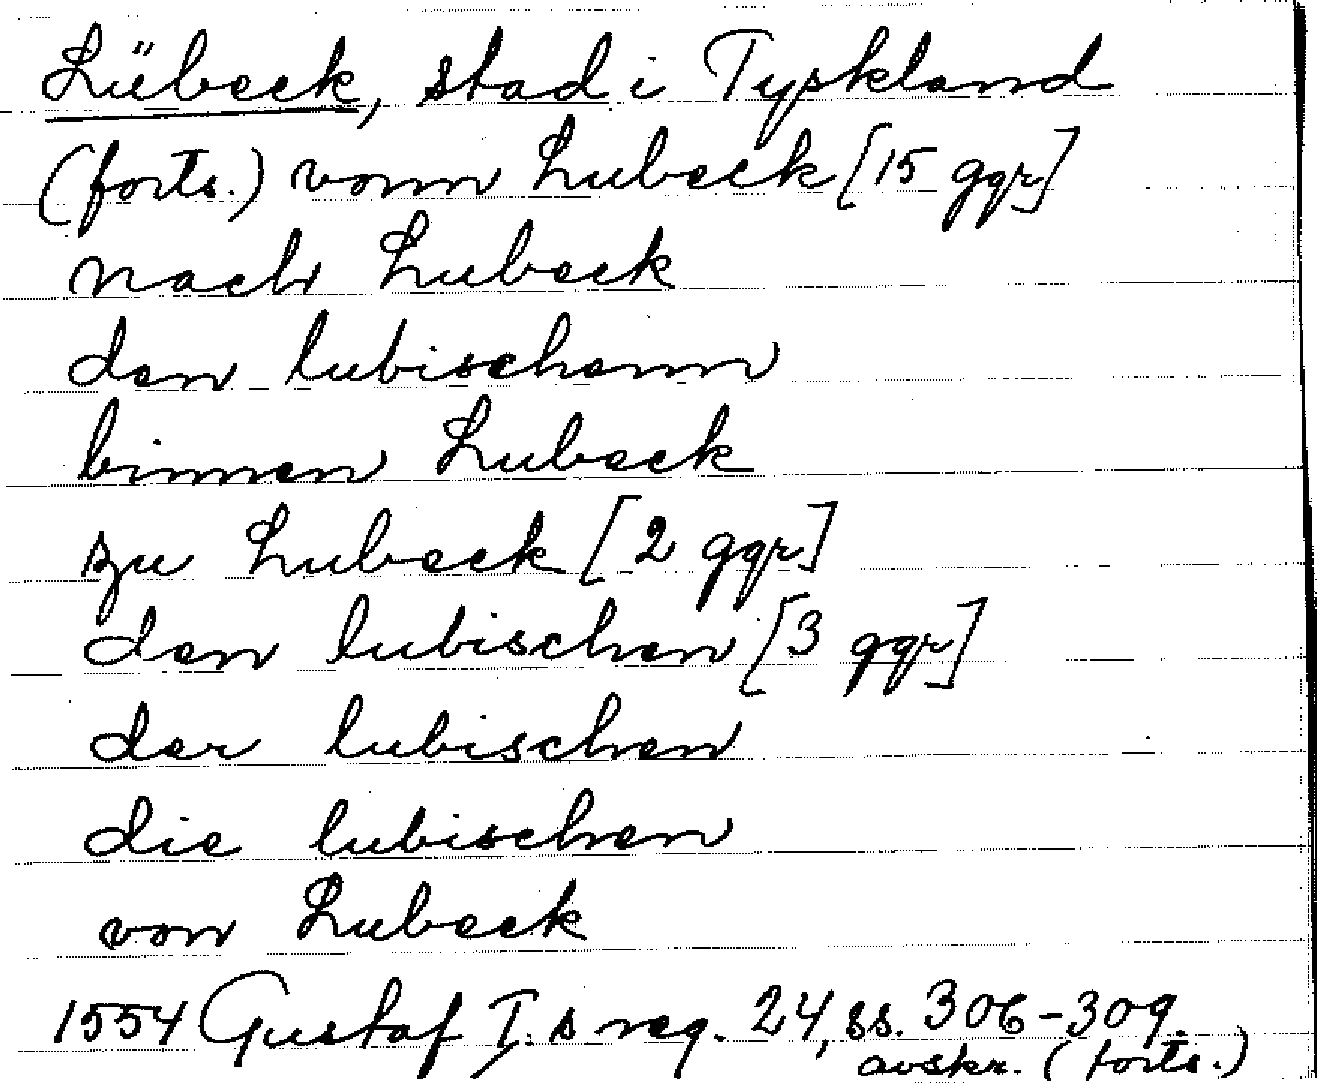 Lübeck, stad i Tyskland
(forts.) vonn Lubeck [15 ggr]
nach Lubeck
den lubischenn
binnen Lubeck
zu Lubeck [2 ggr]
den lubischen [3 ggr]
der lubischen
die lubischen
von Lubeck
1554 Gustaf I:s reg. 24, ss. 306-309.
avskr. (forts.)